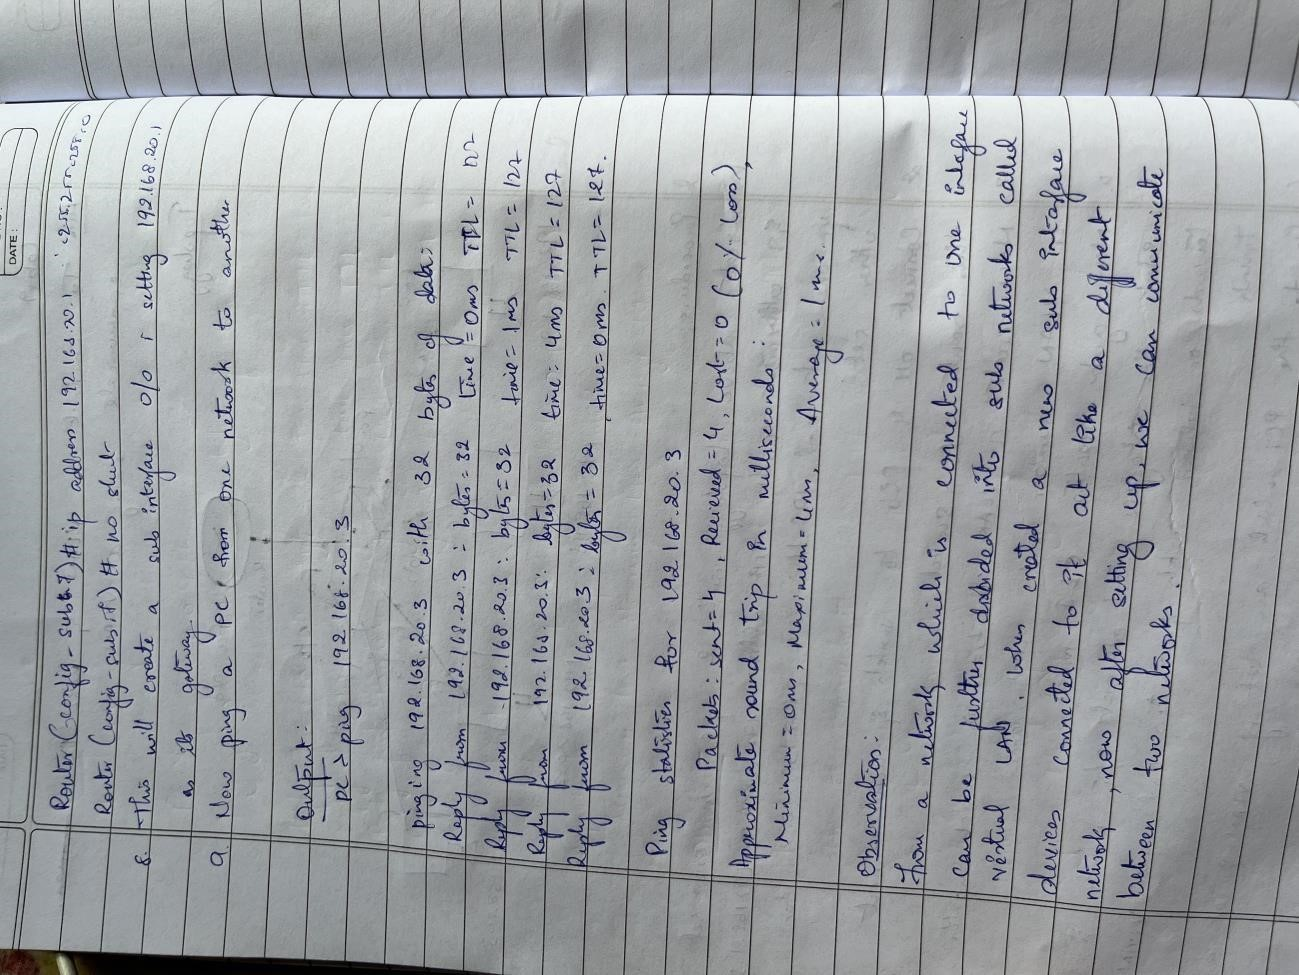 DATE:
Router (config-subif) # ip address 192.168.20.1 255.255.255.0
Router (config-subif) # no shut
8. This will create a sub interface 0/0 setting 192.168.20.1
as its gateway
9. Now ping a PC from one network to another
Output:
PC > ping 192.168.20.3
pinging 192.168.20.3 with 32 bytes of data:
Reply from 192.168.20.3: bytes=32 time=0ms TTL=127
Reply from 192.168.20.3: bytes=32 time=1ms TTL=127
Reply from 192.168.20.3: bytes=32 time=4ms TTL=127
Reply from 192.168.20.3: bytes=32 time=0ms TTL=127.
Ping statistics for 192.168.20.3
Packets: sent=4, Recieved=4, Lost=0 (0% loss),
Approximate round trip in milliseconds:
Minimum=0ms, Maximum=4ms, Average=1ms.
Observation:
From a network which is connected to one interface
can be further divided into sub networks called
virtual LAN. when created a new sub interface
devices connected to it act like a different
network, now after setting up, we can communicate
between two networks.